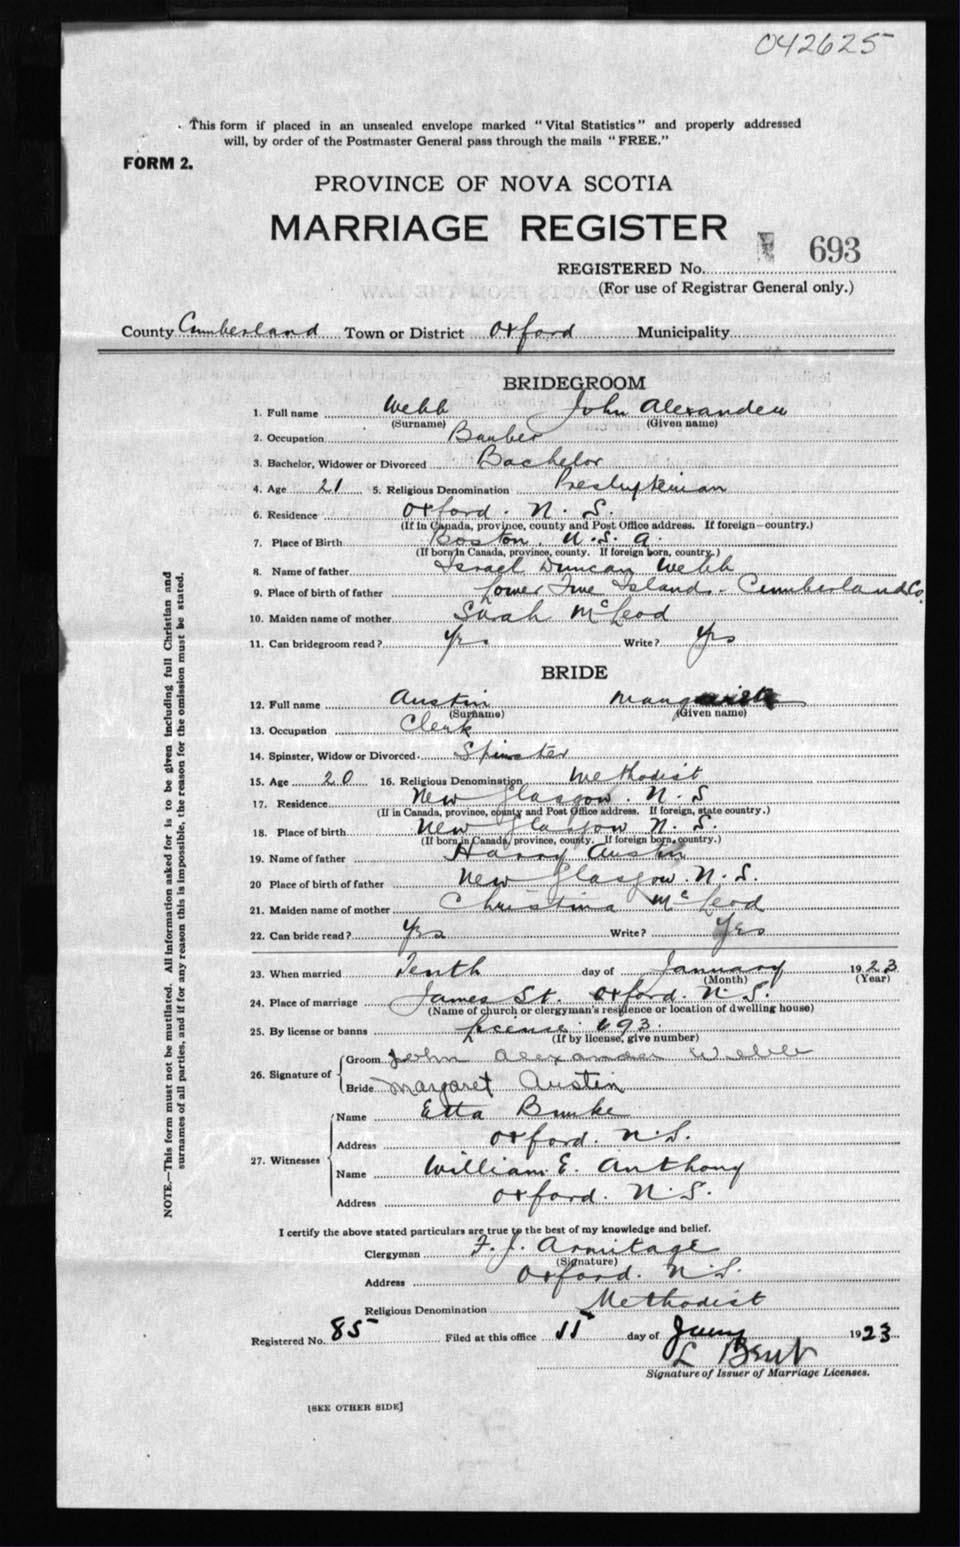 042625
This form if placed in an unsealed envelope marked "Vital Statistics" and properly addressed
will, by order of the Postmaster General pass through the mails "FREE."
FORM 2.
PROVINCE OF NOVA SCOTIA
MARRIAGE REGISTER
693
REGISTERED No.
(For use of Registrar General only.)
County Cumberland Town or District Oxford Municipality
BRIDEGROOM
1. Full name Webb John Alexander
(Surname) (Given name)
2. Occupation Barber
3. Bachelor, Widower or Divorced Bachelor
4. Age 21 5. Religious Denomination Presbyterian
6. Residence Oxford. N. S.
(If in Canada, province, county and Post Office address. If foreign—country.)
7. Place of Birth Boston. U. S. A.
(If born in Canada, province, county. If foreign born, country.)
8. Name of father Israel Duncan Webb
9. Place of birth of father Lower Five Islands. Cumberland Co.
10. Maiden name of mother Sarah McLeod
11. Can bridegroom read? Yes Write? Yes
BRIDE
12. Full name Austin
(Surname) (Given name)
13. Occupation Clerk
14. Spinster, Widow or Divorced. Spinster
15. Age 20 16. Religious Denomination Methodist
17. Residence New Glasgow. N. S
(If in Canada, province, county and Post Office address. If foreign, state country.)
18. Place of birth New Glasgow N. S.
(If born in Canada, province, county. If foreign born, country.)
19. Name of father Harry Austin
20 Place of birth of father New Glasgow. N. S.
21. Maiden name of mother Christina McLeod
22. Can bride read? Yes Write? Yes
23. When married Tenth day of January 1923
(Month) (Year)
24. Place of marriage James St. Oxford. N. S.
(Name of church or clergyman's residence or location of dwelling house)
25. By license or banns License. 693.
(If by license, give number)
26. Signature of
Groom John Alexander Webb
Bride Margaret Austin
27. Witnesses
Name Etta Burke
Address Oxford. N. S.
Name William E. Anthony
Address Oxford. N. S.
I certify the above stated particulars are true to the best of my knowledge and belief.
Clergyman F. J. Armitage
(Signature)
Address Oxford. N. S.
Religious Denomination Methodist
Registered No. 85 Filed at this office 15 day of Jany 1923
L Bent
Signature of Issuer of Marriage Licenses.
[SEE OTHER SIDE]
NOTE.—This form must not be mutilated. All information asked for is to be given including full Christian and
surnames of all parties, and if for any reason this is impossible, the reason for the omission must be stated.